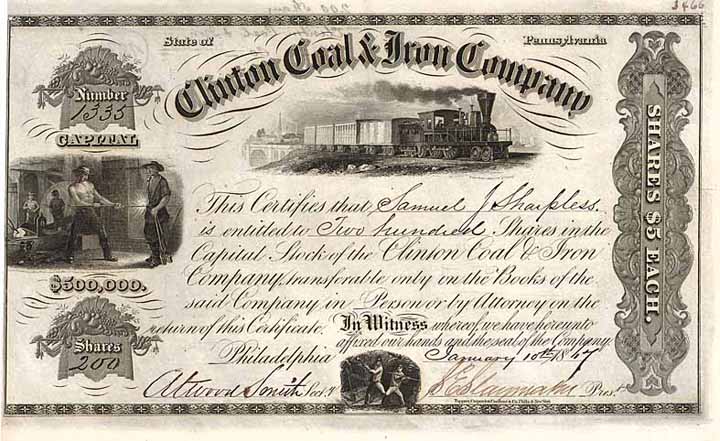 200 Shares
3466
State of Pennsylvania
Clinton Coal & Iron Company
Number
1335
CAPITAL
$500,000.
Shares
200
SHARES $5 EACH.
This Certifies that Samuel J Sharpless
is entitled to Two hundred Shares in the
Capital Stock of the Clinton Coal & Iron
Company, transferable only on the Books of the
said Company in Person or by Attorney on the
return of this Certificate. In Witness whereof, we have hereunto
affixed our hands and the seal of the Company.
Philadelphia January 10th 1867
Atwood Smith Sec.y Pres.t